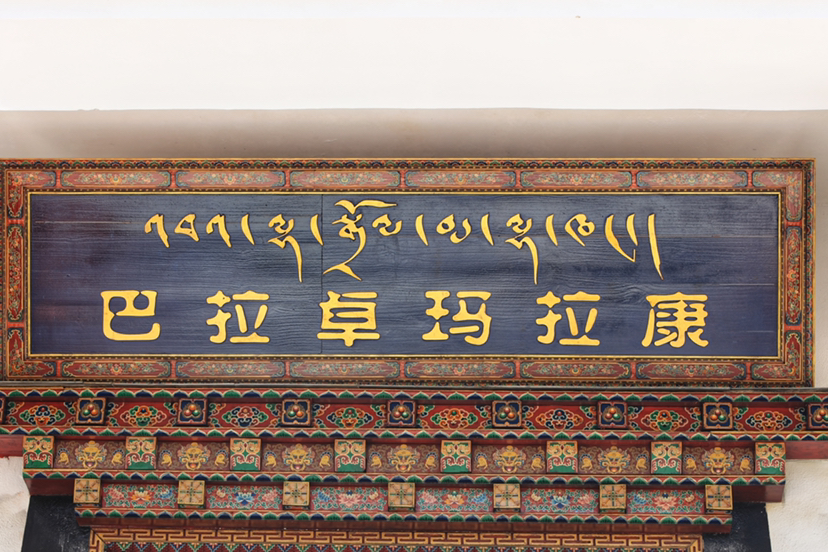 ལྷ་སྒྲོལ་མ་ལྷ་ཁང་།།
巴拉卓玛拉康